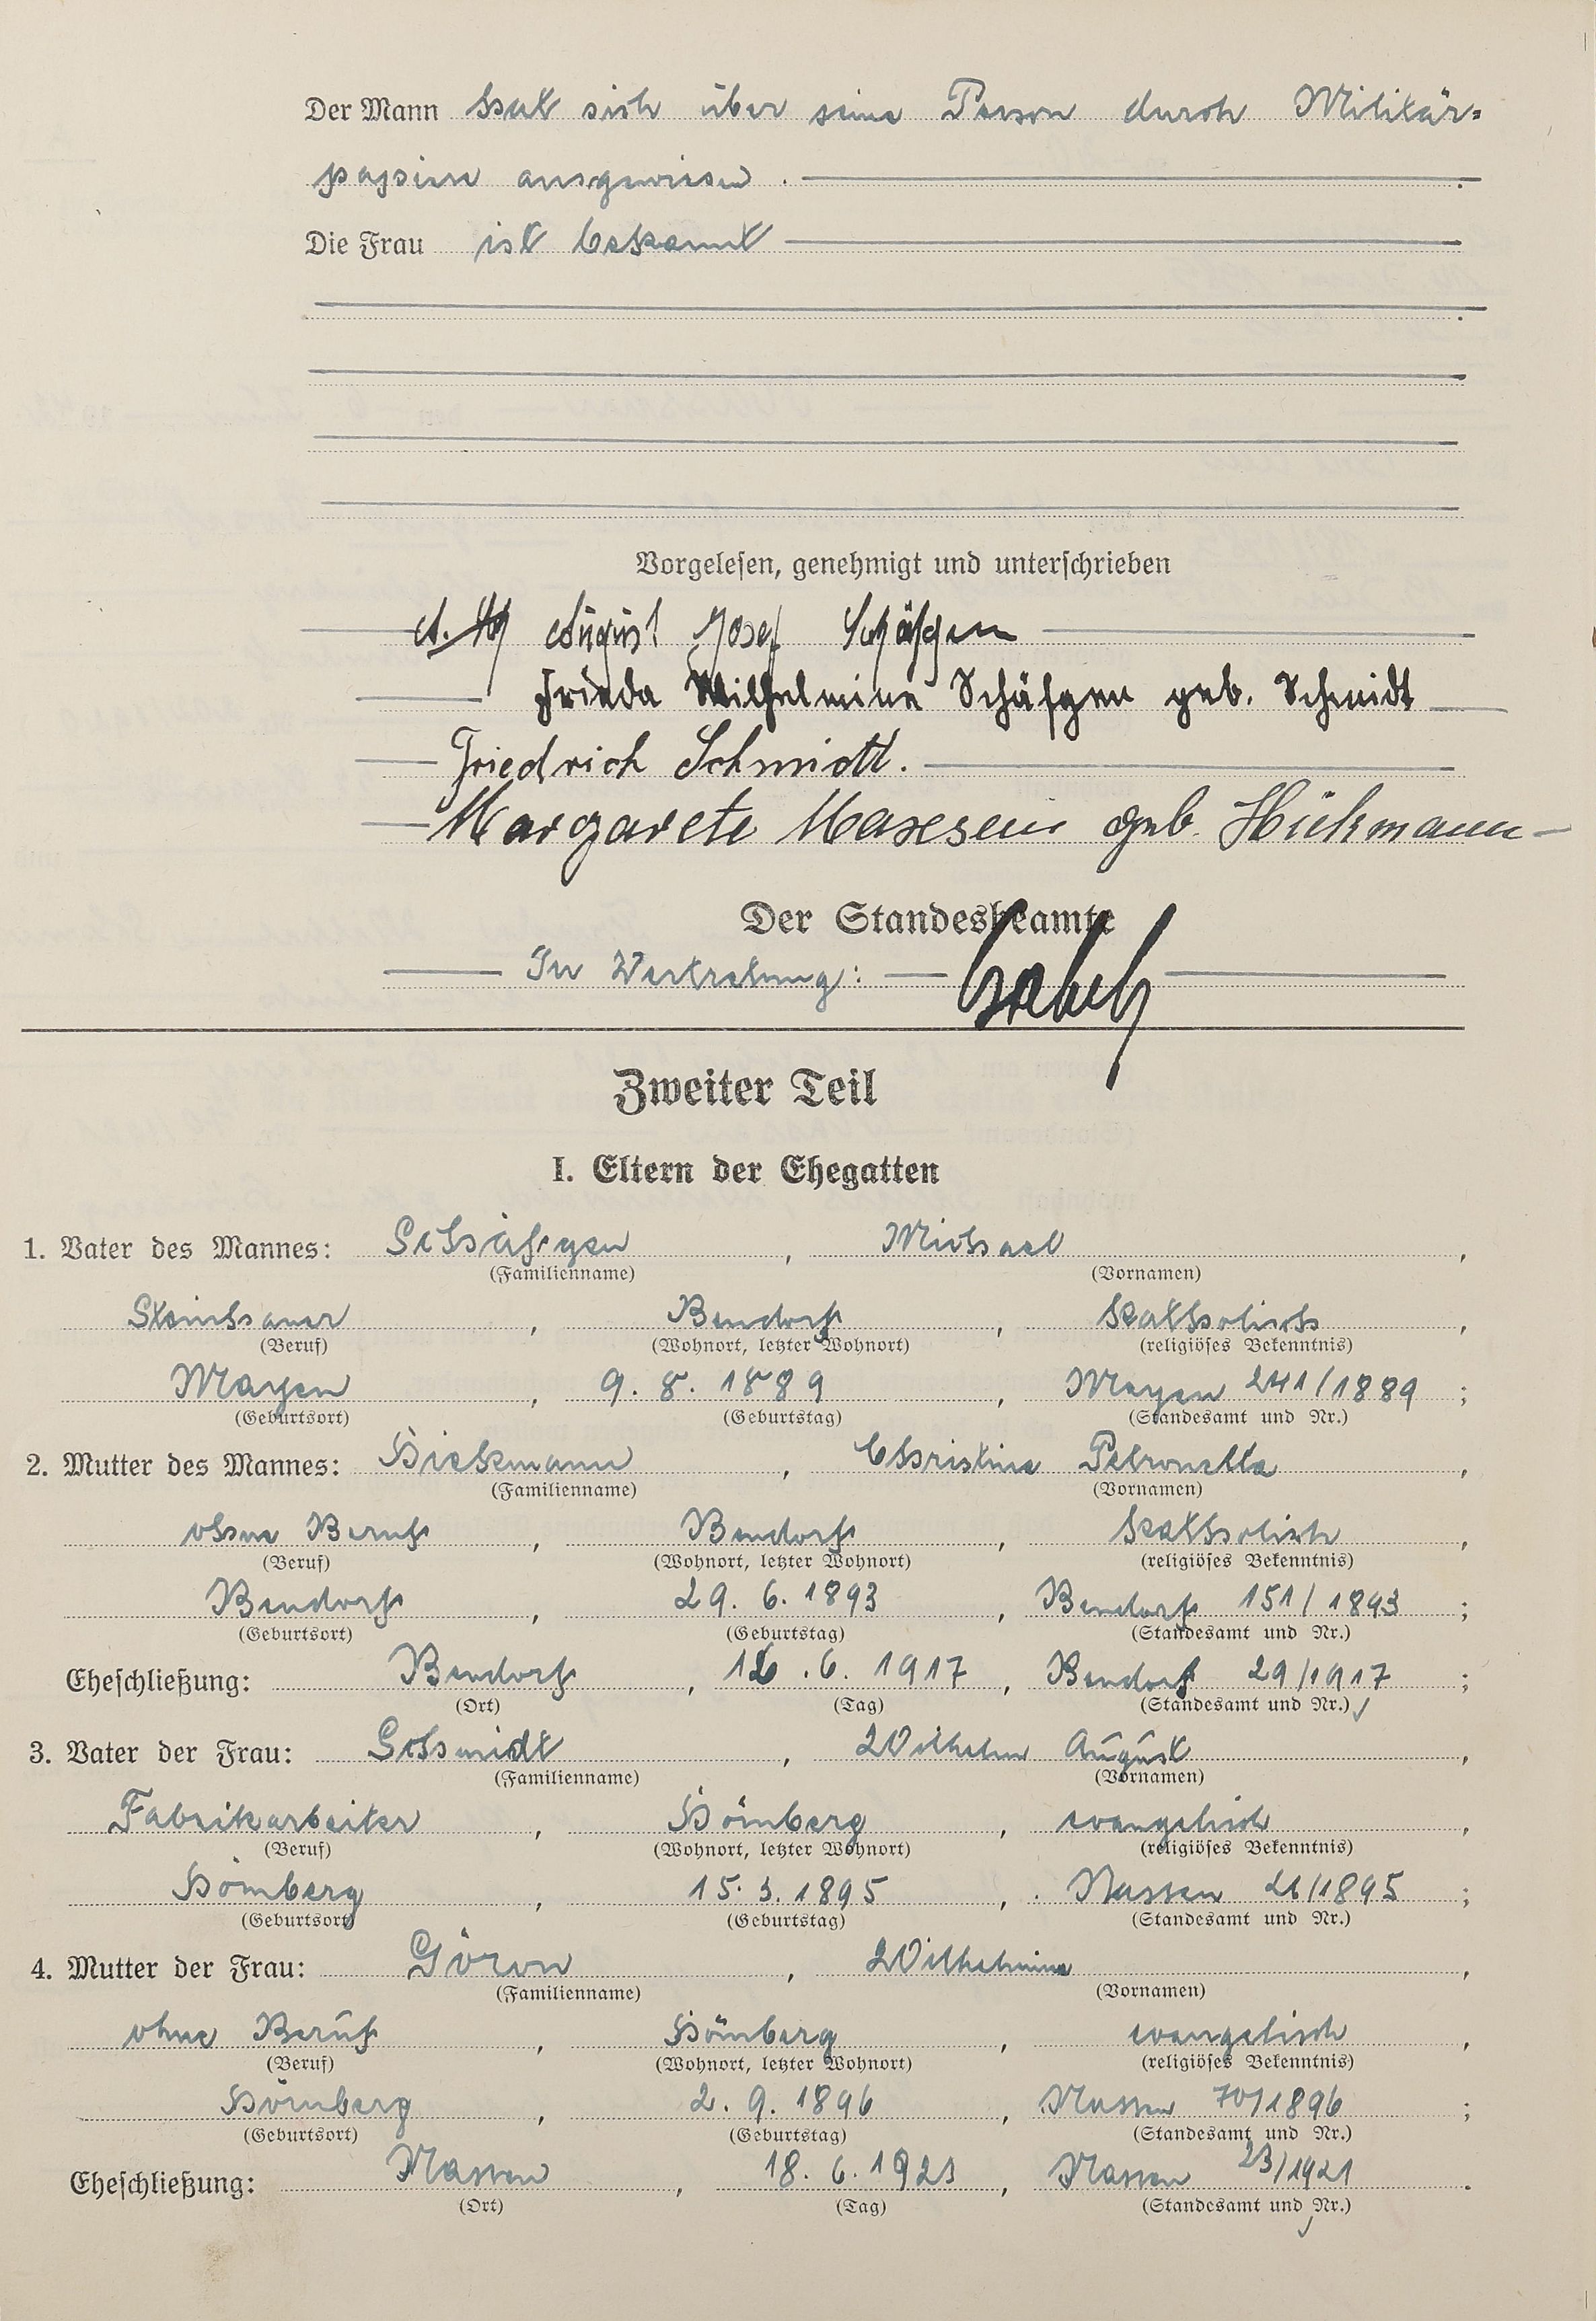 Der Mann hat sich über seine Person durch Militär=
papiere ausgewiesen.
Die Frau ist bekannt
Vorgelesen, genehmigt und unterschrieben
August Josef Schäfgen
Frieda Wilhelmine Schäfgen geb. Schmidt
Friedrich Schmidt.
Margarete geb.
Der Standesbeamte
In Vertretung:
Zweiter Teil
I. Eltern der Ehegatten
1. Vater des Mannes: Schäfgen, Michael,
(Familienname) (Vornamen)
Steinhauer, Bendorf, katholisch,
(Beruf) (Wohnort, letzter Wohnort) (religiöses Bekenntnis)
Mayen, 9. 8. 1889, Mayen 241/1889;
(Geburtsort) (Geburtstag) (Standesamt und Nr.)
2. Mutter des Mannes: Hickmann, Christine Petronella,
(Familienname) (Vornamen)
ohne Beruf, Bendorf, katholisch,
(Beruf) (Wohnort, letzter Wohnort) (religiöses Bekenntnis)
Bendorf, 29. 6. 1893, Bendorf 151/1893;
(Geburtsort) (Geburtstag) (Standesamt und Nr.)
Eheschließung: Bendorf, 16.6. 1917, Bendorf 29/1917;
(Ort) (Tag) (Standesamt und Nr.)
3. Vater der Frau: Schmidt, Wilhelm August,
(Familienname) (Vornamen)
Fabrikarbeiter, Hömberg, evangelisch,
(Beruf) (Wohnort, letzter Wohnort) (religiöses Bekenntnis)
Hömberg, 15. 3. 1895, Nassau 26/1895;
(Geburtsort) (Geburtstag) (Standesamt und Nr.)
4. Mutter der Frau: , Wilhelmine,
(Familienname) (Vornamen)
ohne Beruf, Hömberg, evangelisch,
(Beruf) (Wohnort, letzter Wohnort) (religiöses Bekenntnis)
Hömberg, 2. 9. 1896, Nassau 70/1896;
(Geburtsort) (Geburtstag) (Standesamt und Nr.)
Eheschließung: Nassau, 18. 6. 1921, Nassau 23/1921.
(Ort) (Tag) (Standesamt und Nr.)